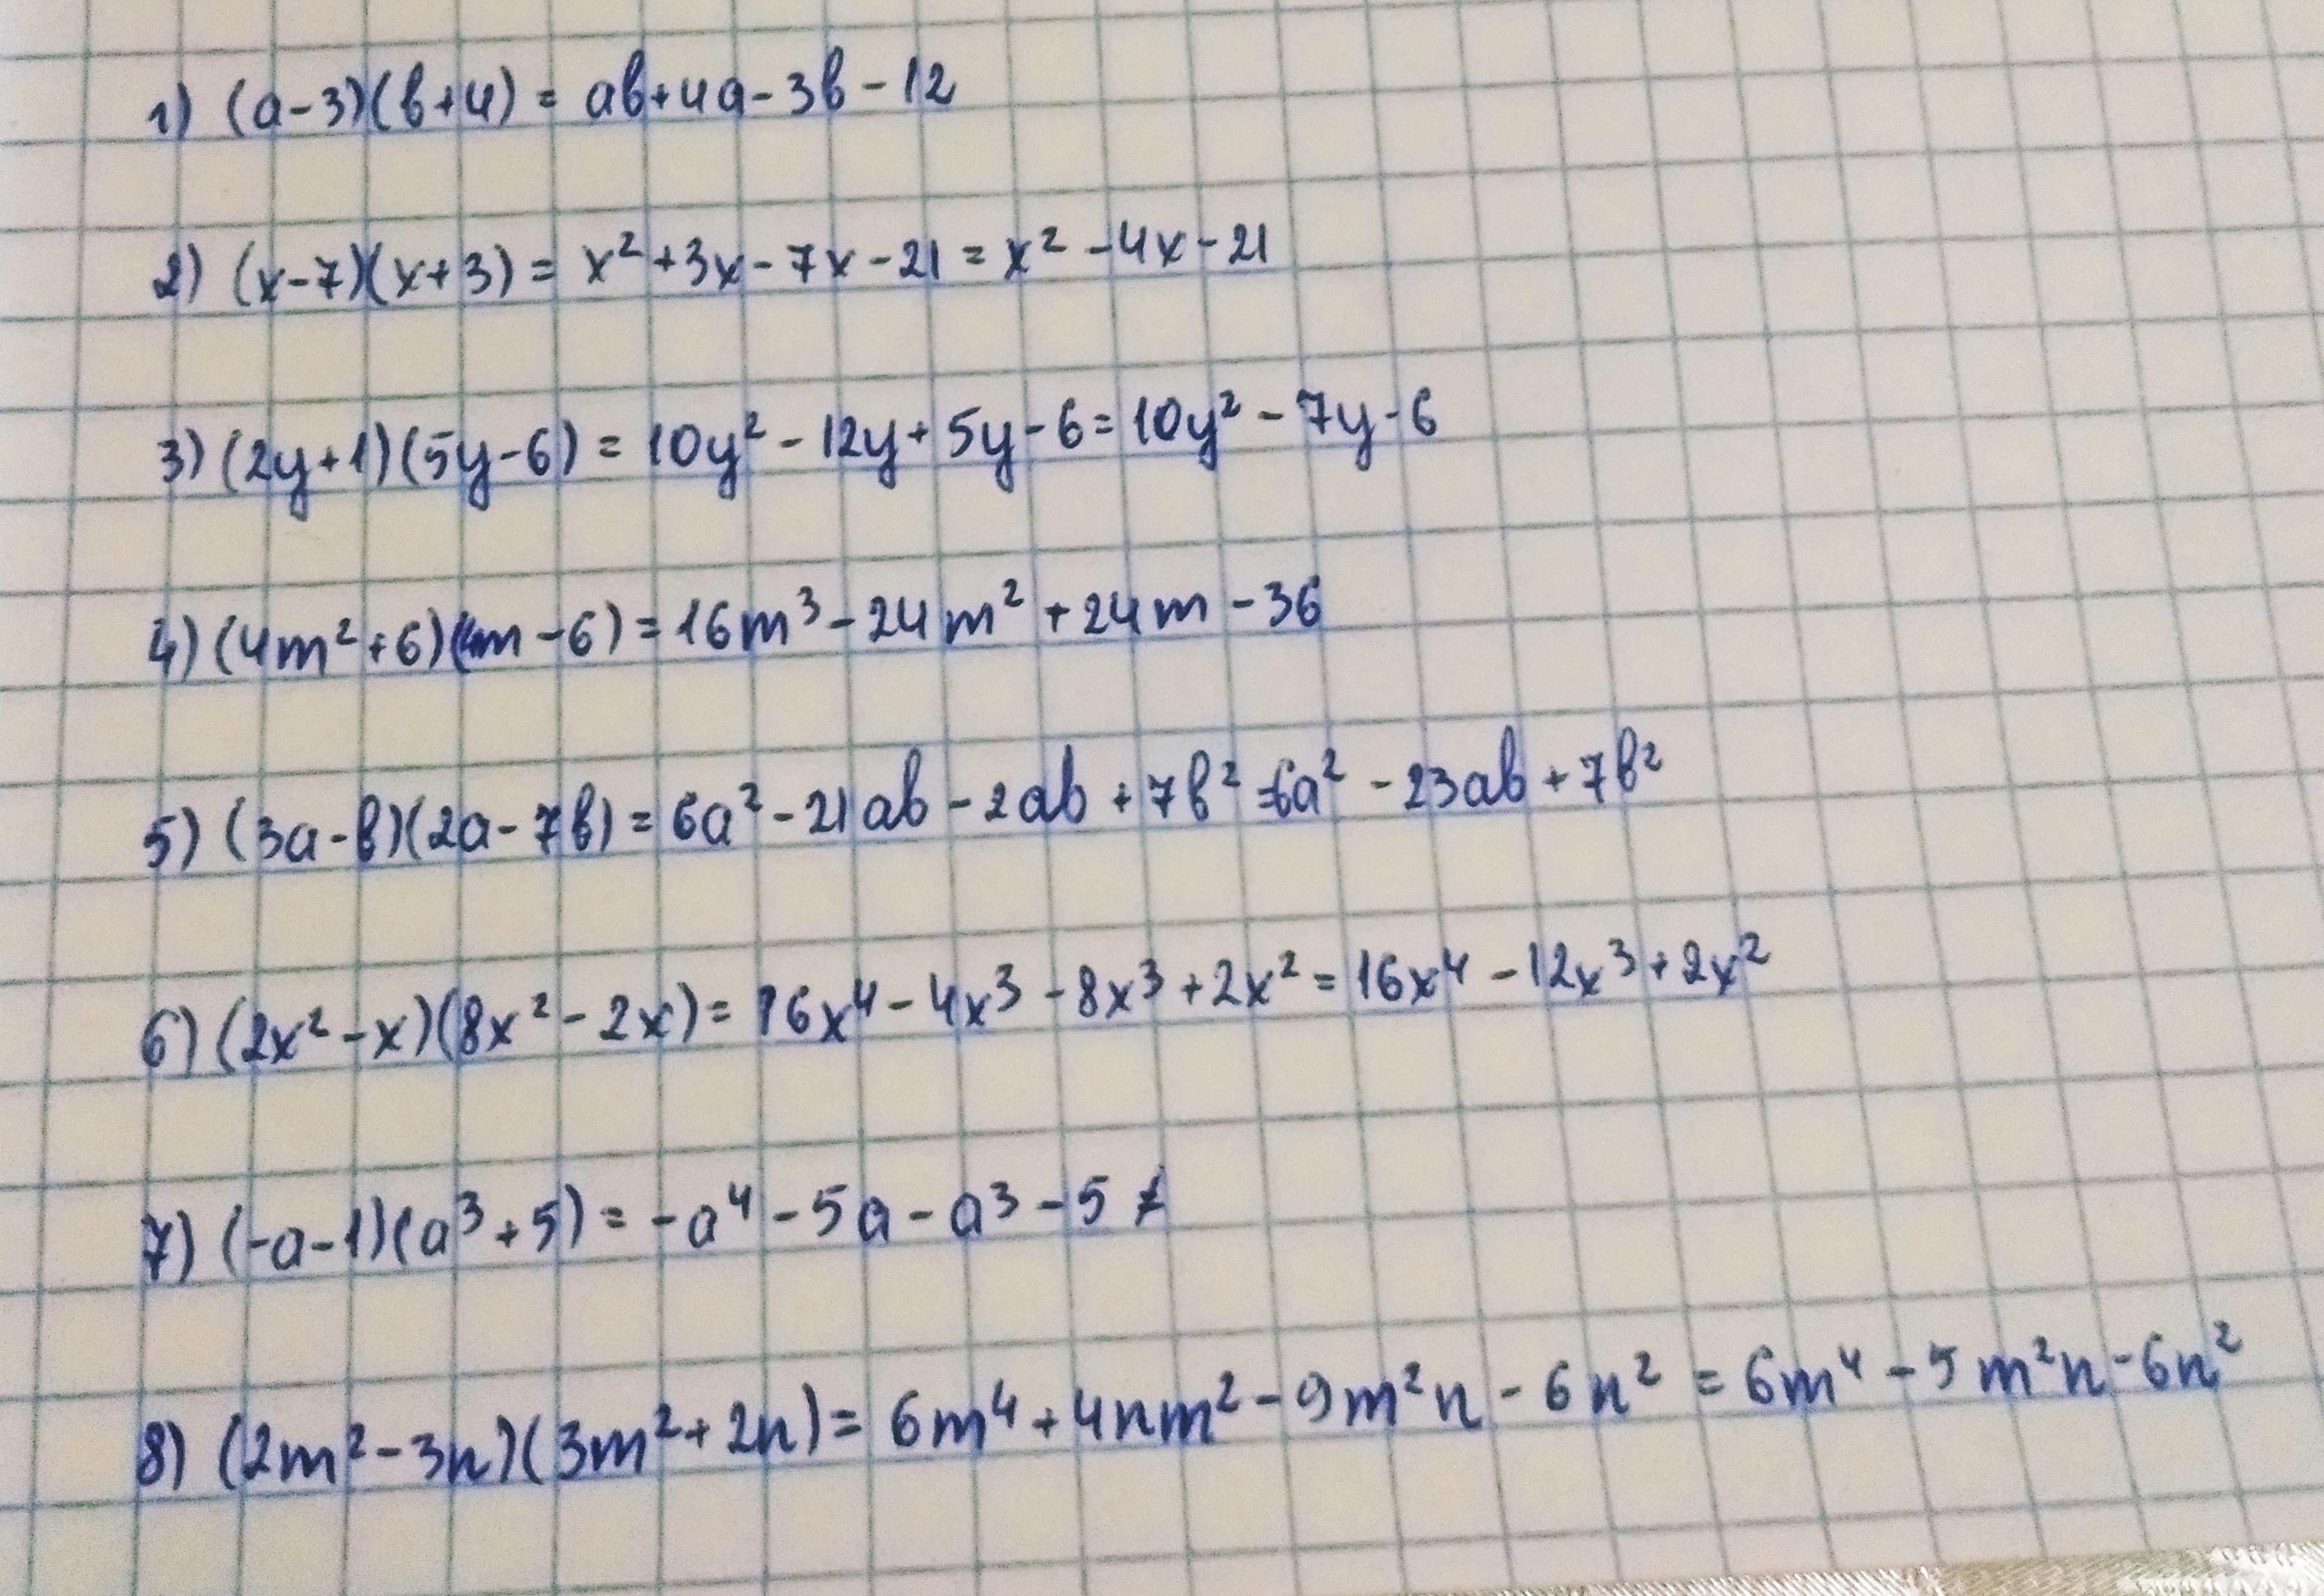 1) (a-3)(b+4) = ab+4a-3b-12
2) (x-7)(x+3) = x²+3x-7x-21 = x²-4x-21
3) (2y+1)(5y-6) = 10y²-12y+5y-6 = 10y²-7y-6
4) (4m²+6)(4m-6) = 16m³-24m²+24m-36
5) (3a-b)(2a-7b) = 6a²-21ab-2ab+7b² = 6a²-23ab+7b²
6) (2x²-x)(8x²-2x) = 16x⁴-4x³-8x³+2x² = 16x⁴-12x³+2x²
7) (-a-1)(a³+5) = -a⁴-5a-a³-5
8) (2m²-3n)(3m²+2n) = 6m⁴+4nm²-9m²n-6n² = 6m⁴-5m²n-6n²